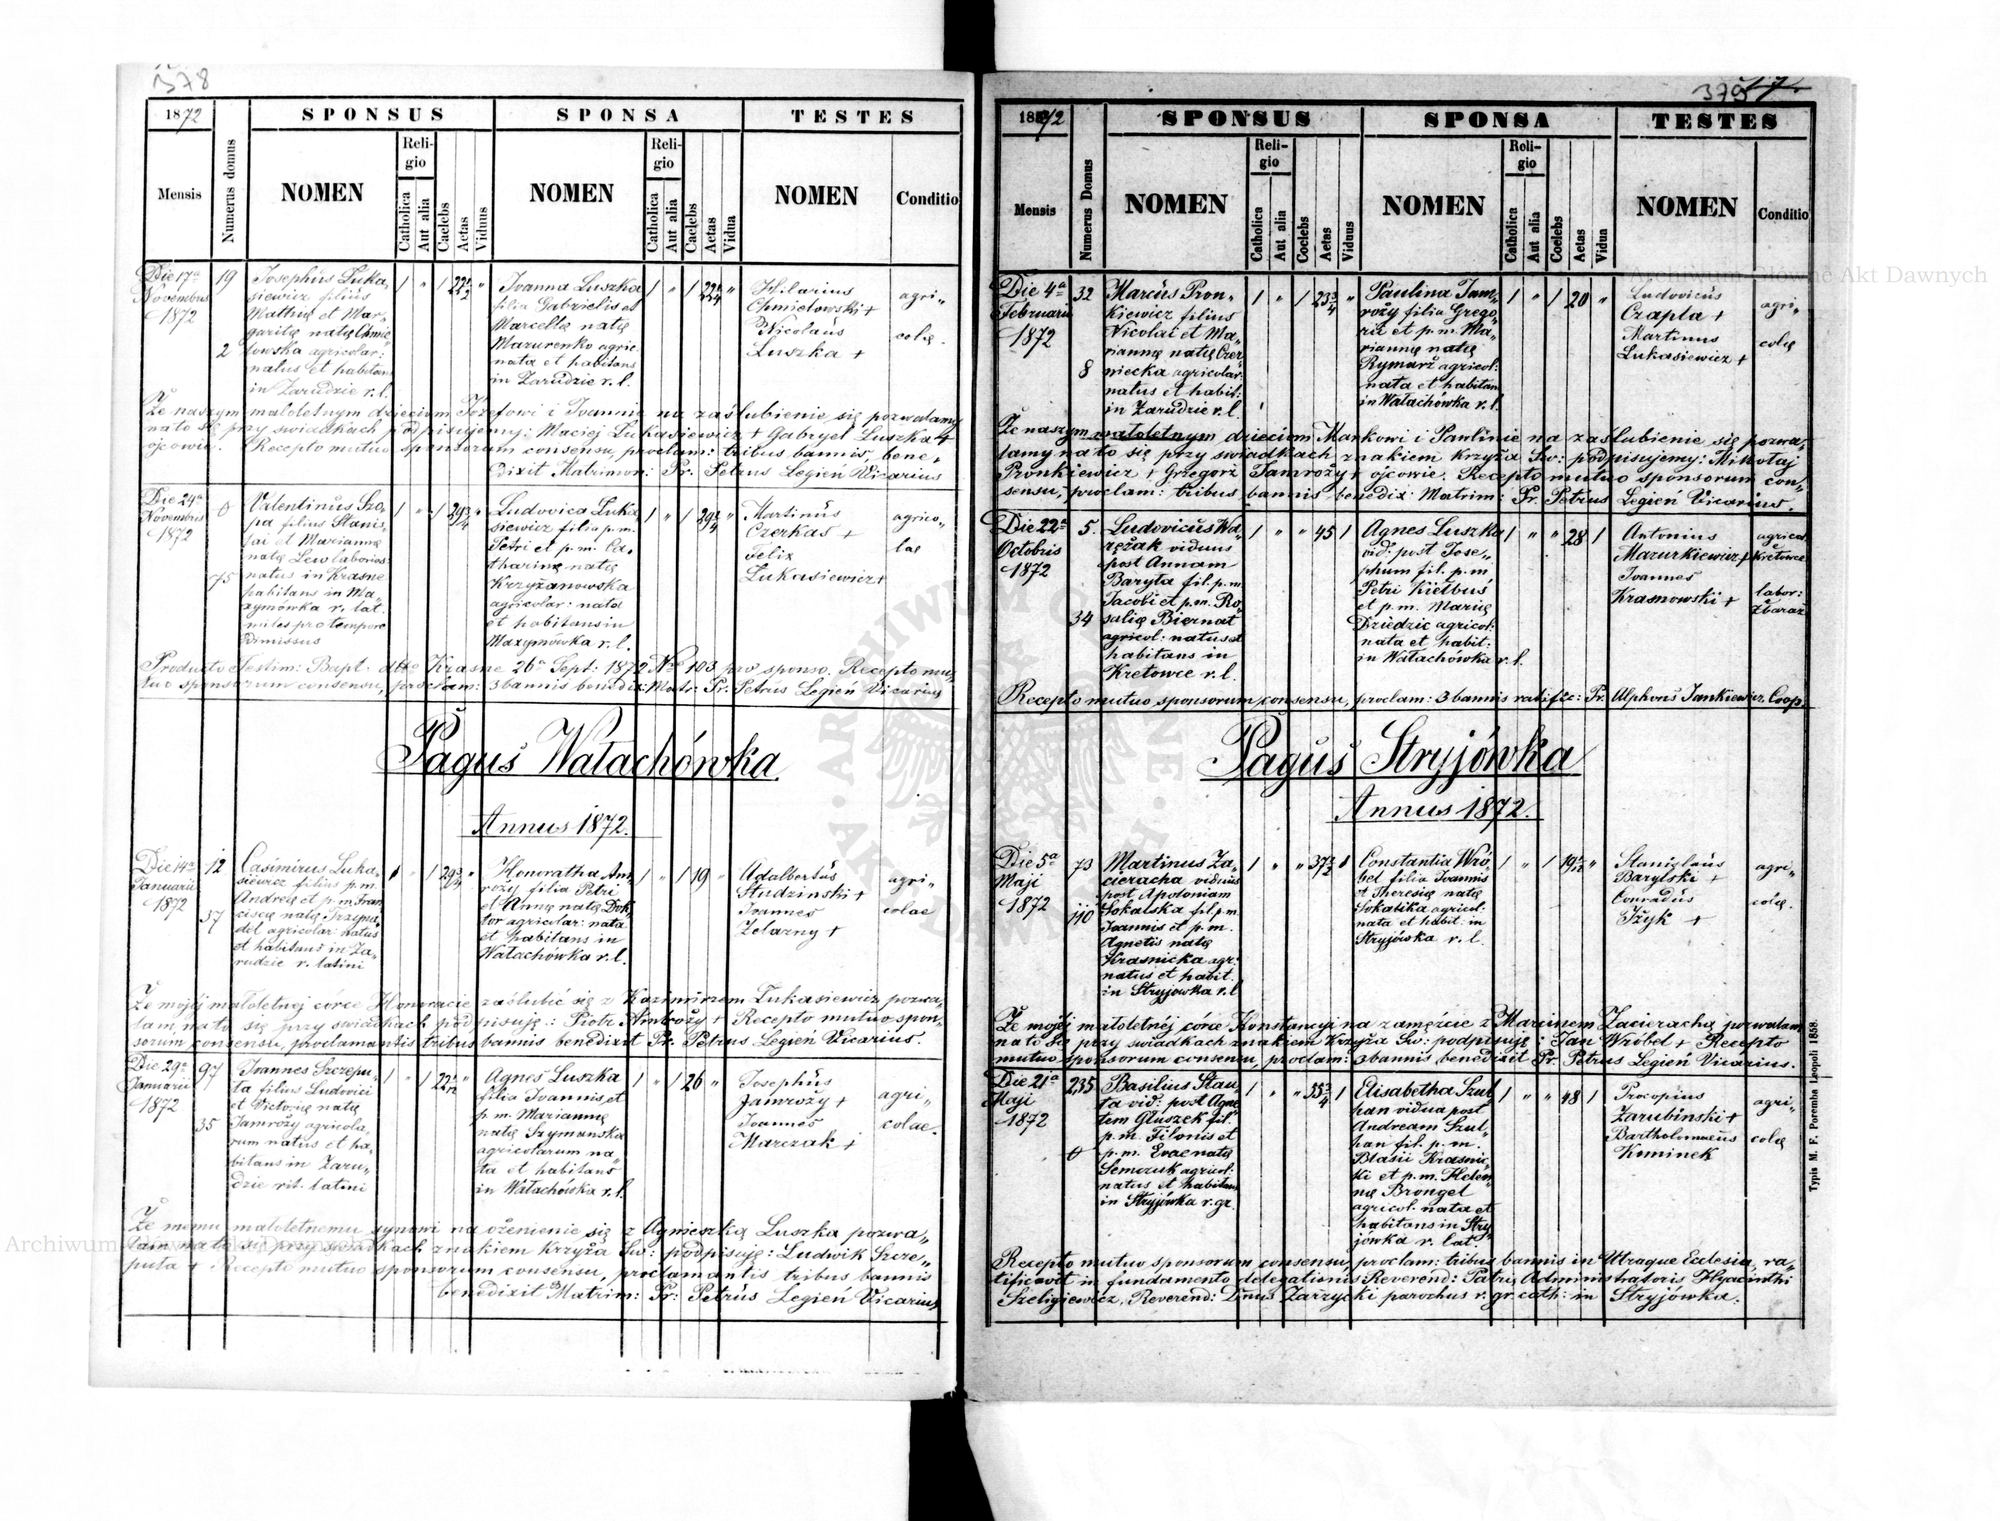 378
1872
SPONSUS
SPONSA
TESTES
Mensis
Numerus domus
NOMEN
Religio
Catholica
Aut alia
Caelebs
Aetas
Viduus
NOMEN
Religio
Catholica
Aut alia
Caelebs
Aetas
Vidua
NOMEN
Conditio
Die 17a
Novembris
1872
19
2
Josephus Luka„
siewicz filius
Mathiæ et Mar„
garitæ natæ Chmie„
lowska agricolar:
natus et habitans
in Zarudzie r. l.
Joanna Luszka
filia Gabrielis et
Marcellæ natæ
Mazurenko agric:
nata et habitans
in Zarudzie r. l.
Hilarius
Chmielowski +
Nicolaus
Luszka +
agri„
colæ.
Że naszym małoletnym dzieciom Józefowi i Joannie na zaślubienie się pozwalamy
na to się przy świadkach podpisujemy: Maciej Łukasiewicz + Gabryel Luszka +
ojcowie. Recepto mutuo sponsorum consensu, proclam: tribus bannis, bene„
dixit Matrimon: Pr. Petrus Legień Vicarius
Die 24a
Novembris
1872
0
75
Valentinus Szo„
pa filius Stanis„
lai et Mariannæ
natæ Lew laborios:
natus in Krasne
habitans in Ma„
xymówka r. lat.
miles pro tempore
dimissus
29 3/4
Ludovica Luka
siewicz filia p.m.
Petri et p.m. Ca„
tharinæ natæ
Krzyżanowska
agricolar: nata
et habitans in
Maxymówka r. l.
Martinus
Czerkas +
Felix
Łukasiewicz +
agrico„
lae
Producto Testim: Bapt. dtto Krasne 26a Sept: 1872 No 103 pro sponso. Recepto mu„
tuo sponsorum consensu, proclam: 3 bannis benedix: Matr: Pr. Petrus Legień Vicarius
Pagus Wałachówka
Annus 1872.
Die 14a
Januarii
1872
12
37
Casimirus Luka„
siewicz filius p.m.
Andreæ et p.m. Fran„
ciscæ natæ Trzepa„
del agricolar: natus
et habitans in Za„
rudzie r. latini
29 3/4
Honoratha Am„
roży filia Petri
et Annæ natæ Dok„
tor agricolar: nata
et habitans in
Wałachówka r. l.
19
Adalbertus
Studzinski +
Joannes
Zelazny +
agri„
colae
Że mojéj małoletnej córce Honoracie zaślubić się z Kazimirzem Łukasiewicz pozwa„
lam, na to się przy świadkach podpisuję: Piotr Ambroży + Recepto mutuo spon„
sorum consensu, proclamantis tribus bannis benedixit Pr. Petrus Legień Vicarius.
Die 29a
Januarii
1872
97
35
Joannes Szczepu„
ta filius Ludovici
et Victoriæ natæ
Jamroży agricola„
rum natus et ha„
bitans in Zaru„
dzie rit. latini
Agnes Luszka
filia Joannis et
p.m. Mariannæ
natæ Szymanska
agricolarum na„
ta et habitans
in Wałachówka r. l.
26
Josephus
Jamroży +
Joannes
Marczak +
agri„
colae.
Że memu małoletnemu synowi na ożenienie się z Agnieszką Luszka pozwa„
lam na to się przy świadkach znakiem krzyża Św: podpisuję: Ludwik Szcze„
puta + Recepto mutuo sponsorum consensu, proclamantis tribus bannis
benedixit Matrim: Pr: Petrus Legień Vicarius
379
1872
SPONSUS
SPONSA
TESTES
Mensis
Numerus Domus
NOMEN
Religio
Catholica
Aut alia
Coelebs
Aetas
Viduus
NOMEN
Religio
Catholica
Aut alia
Coelebs
Aetas
Vidua
NOMEN
Conditio
Die 4a
Februarii
1872
32
8
Marcus Pron„
kiewicz filius
Nicolai et Ma„
riannæ natæ Czer„
niecka agricolar:
natus et habit:
in Zarudzie r. l.
23 3/4
Paulina Jam„
roży filia Grego„
rii et p.m. Ma„
riannæ natæ
Rymarz agricol:
nata et habitans
in Wałachówka r. l.
20
Ludovicus
Czapla +
Martinus
Lukasiewicz +
agri„
colæ
Że naszym małoletnym dzieciom Markowi i Pawlinie na zaślubienie się pozwa„
lamy na to się przy świadkach znakiem krzyża Św: podpisujemy: Mikołaj
Pronkiewicz + Grzegorz Jamroży + ojcowie. Recepto mutuo sponsorum con„
sensu, proclam: tribus bannis benedix: Matrim: Pr. Petrus Legień Vicarius.
Die 22a
Octobris
1872
5.
34
Ludovicus Wo„
rężak viduus
post Annam
Baryła fil. p.m.
Jacobi et p.m. Ro„
saliæ Biernat
agricol: natus et
habitans in
Kretowce r. l.
45
Agnes Luszka
vid: post Jose„
phum fil. p.m
Petri Kiełbus
et p.m. Mariæ
Dziedzic agricol:
nata et habit:
in Wałachówka r. l.
28
Antonius
Mazurkiewicz +
Joannes
Krasnowski +
agricol:
e
Kretowce
labor:
Zbaraż
Recepto mutuo sponsorum consensu, proclam: 3 bannis ratific: Pr. Alphons Jankiewicz Coop.
Pagus Stryjówka
Annus 1872.
Die 5a
Maji
1872
73
110
Martinus Za„
cieracha viduus
post Apoloniam
Sokalska fil. p.m.
Joannis et p.m.
Agnetis natæ
Krasnicka agr:
natus et habit.
in Stryjowka r. l
Constantia Wró„
bel filia Joannis
et Theresiæ natæ
Sokalska agricol:
nata et habit. in
Stryjówka r. l.
Stanislaus
Barylski +
Conradus
Iżyk +
agri„
colæ.
Że mojéj małoletnéj córce Konstancyi na zamęźcie z Marcinem Zacierachą pozwalam,
na to się przy świadkach znakiem krzyża Św: podpisuję: Jan Wróbel + Recepto
mutuo sponsorum consensu, proclam: 3 bannis benedixit Pr. Petrus Legień Vicarius.
Die 21a
Maji
1872
235
0
Basilius Stau„
ta vid: post Agne„
tem Głuszek fil:
p.m. Filonis et
p.m. Evae natæ
Semczuk agricol:
natus et habitans
in Stryjówka r. gr.
35 3/4
Elisabetha Szul„
han vidua post
Andream Szul„
han fil. p.m.
Blasii Krasnic„
ki et p.m. Helen„
næ Brongel
agricol. nata et
habitans in Stry„
jówka r. lat.
48
Procopius
Zarubinski +
Bartholomaeus
Kominek
agri„
colæ
Recepto mutuo sponsorum consensu, proclam: tribus bannis in utraque Ecclesia, ra„
tificavit in fundamento delegationis Reverend: Patris Administratoris Hyacinthi
Szeligiewicz, Reverend: Dnus Zarzycki parochus r. gr. cath: in Stryjówka.
Typis M. F. Poremba Leopoli 1858.
Archiwum Główne Akt Dawnych
Archiwum Główne Akt Dawnych
ARCHIWUM GŁÓWNE AKT DAWNYCH